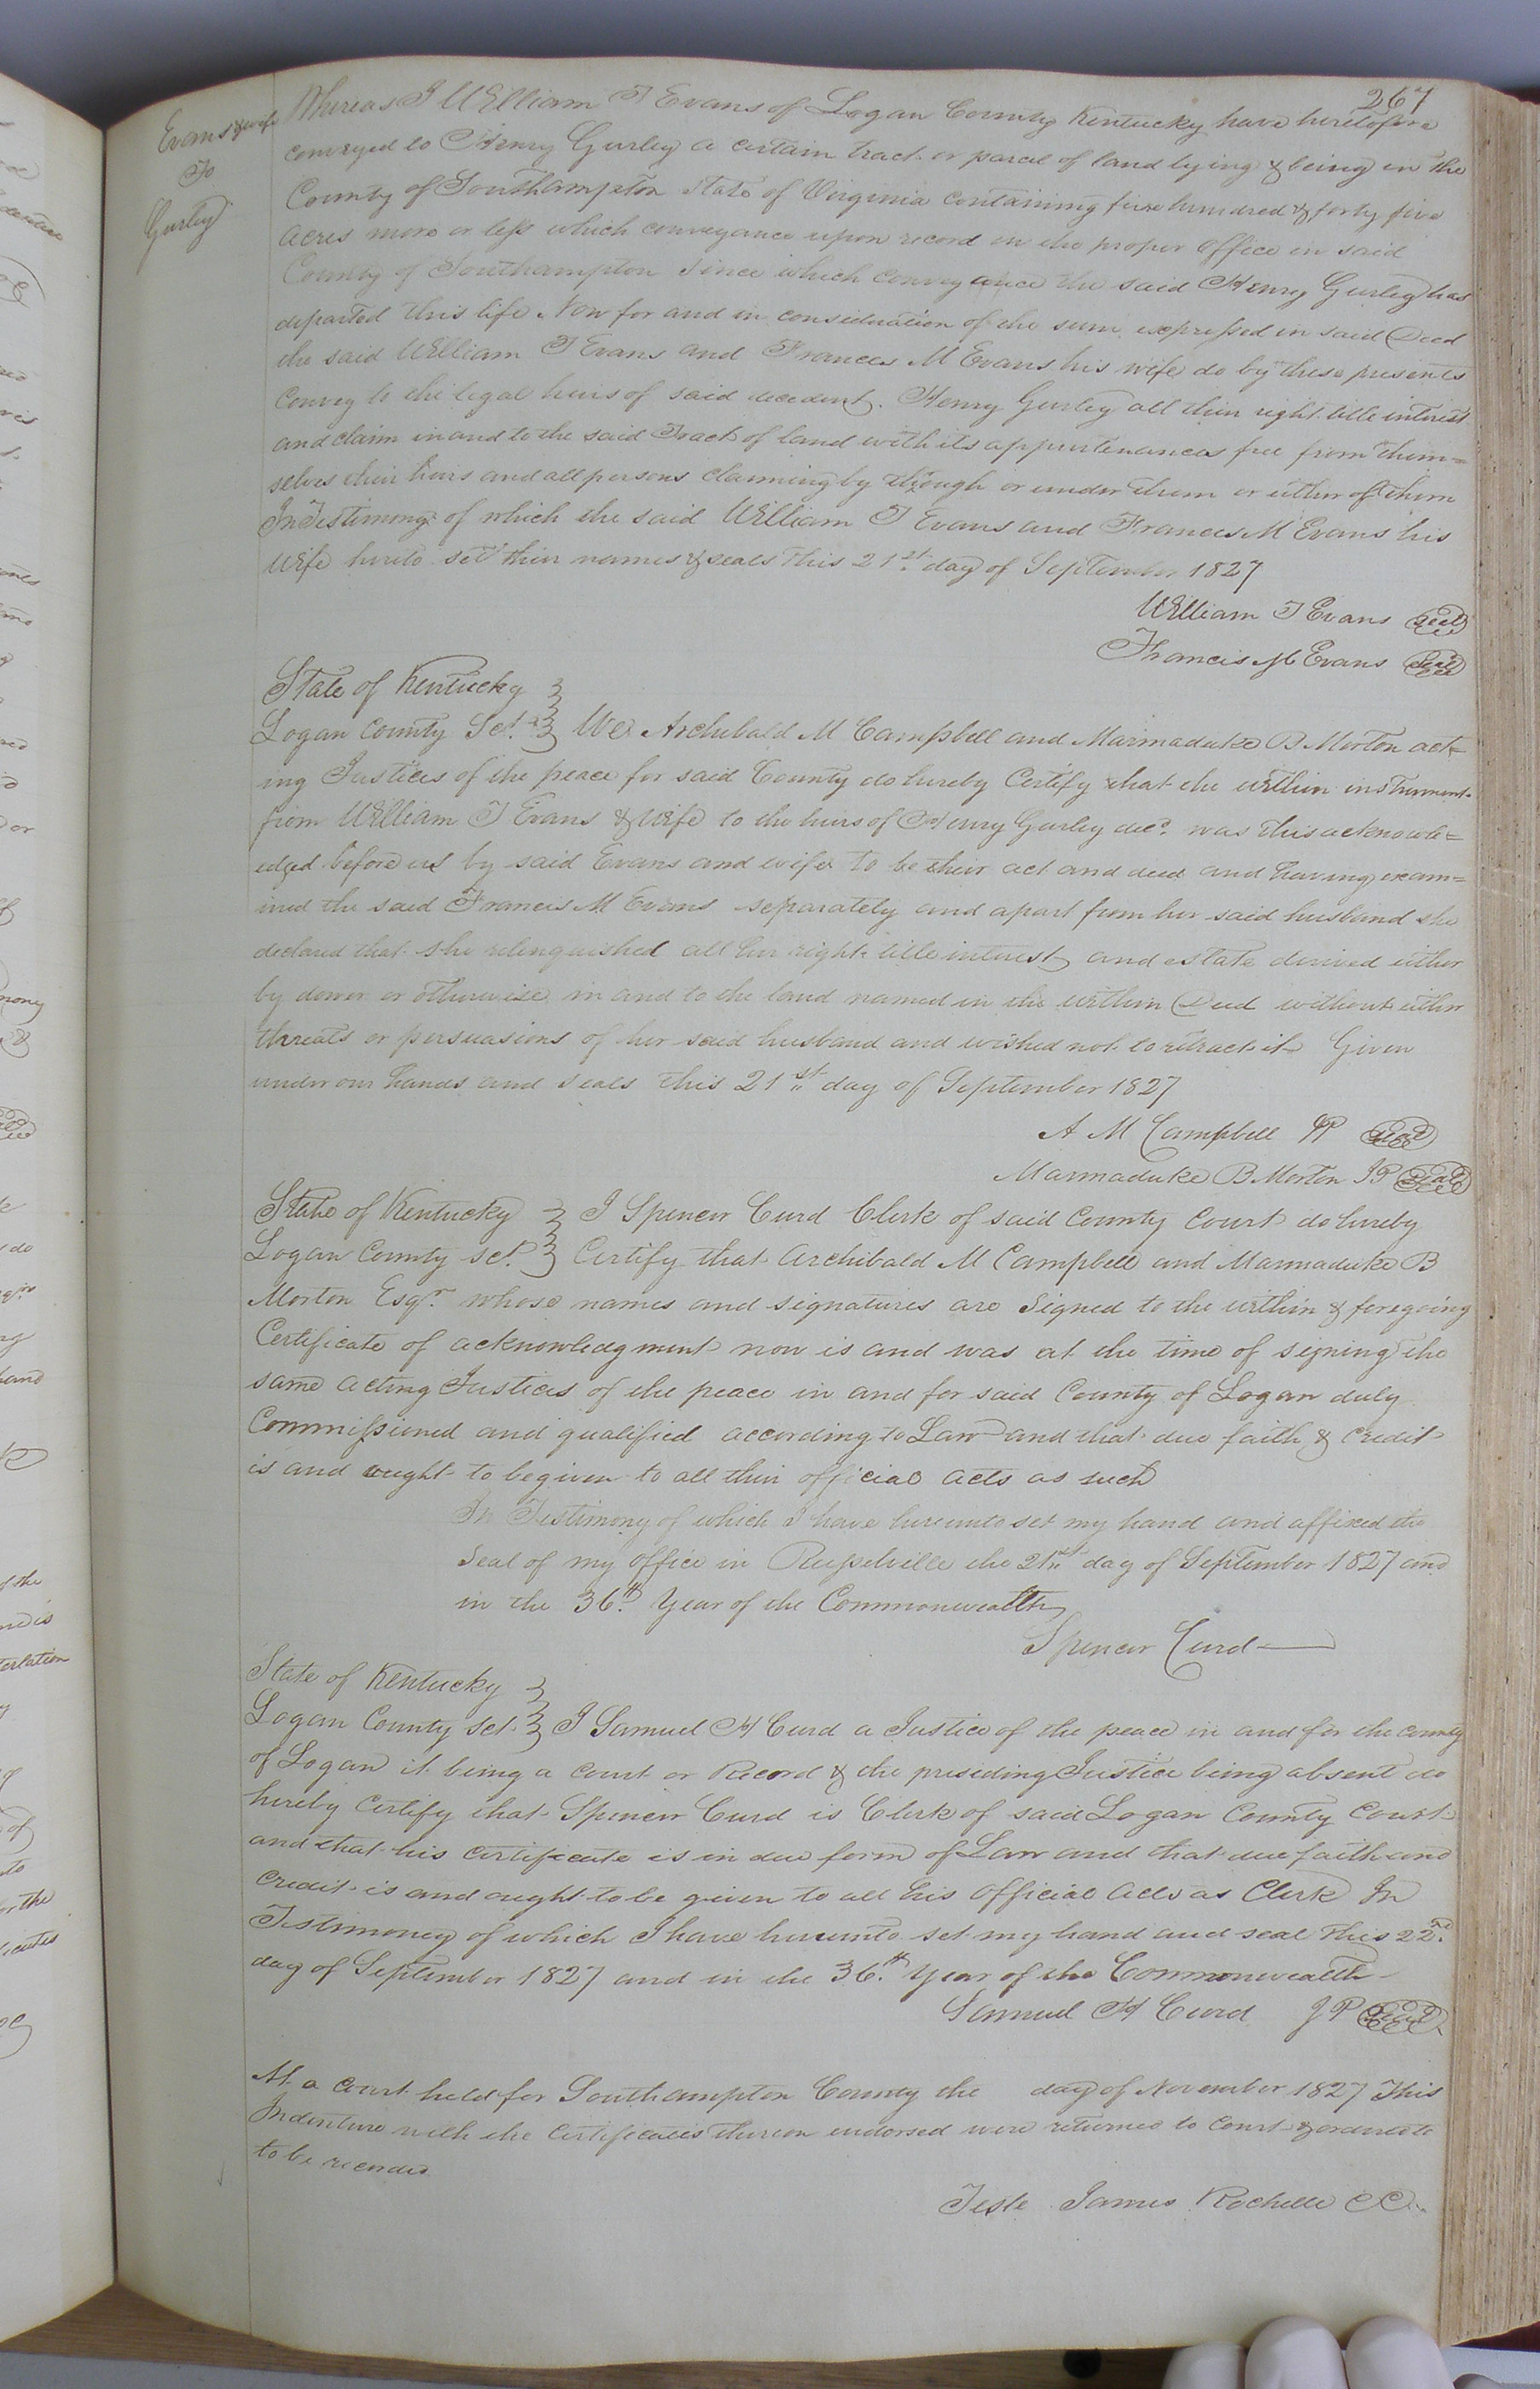 267
Evans & wife
To
Gurley
Whereas I William T Evans of Logan County Kentucky have heretofore
conveyed to Henry Gurley a certain tract or parcel of land lying & being in the
County of Southampton State of Virginia containing five hundred & forty five
acres more or less which conveyance upon record in the proper office in said
County of Southampton Since which conveyance the said Henry Gurley has
departed this life Now for and in consideration of the sum expressed in said Deed
the said William T Evans and Frances M Evans his wife do by these presents
Convey to the legal heirs of said decedent. Henry Gurley all their right title interest
and claim in and to the said Tract of land with its appurtenances free from them=
selves their heirs and all persons claiming by through or under them or either of them
In Testimony of which the said William T Evans and Frances M Evans his
wife hereto set their names & seals this 21st day of September 1827
William T Evans Seal
Francis M Evans Seal
State of Kentucky
Logan County Sct. We Archibald M Campbell and Marmaduke B Morton act=
ing Justices of the peace for said County do hereby Certify that the within instrument
from William T Evans & wife to the heirs of Henry Gurley decd. was this acknowl=
edged before us by said Evans and wife to be their act and deed and having exam=
ined the said Francis M Evans separately and apart from her said husband she
declared that she relinquished all her right title interest and estate derived either
by dower or otherwise in and to the land named in the within Deed without either
threats or persuasions of her said husband and wished not to retract it Given
under our hands and seals this 21st day of September 1827
A M Campbell JP Seal
Marmaduke B Morton JP Seal
State of Kentucky I Spencer Curd Clerk of said County Court do hereby
Logan County sct. Certify that Archibald M Campbell and Marmaduke B
Morton Esqr. whose names and signatures are signed to the within & foregoing
Certificate of acknowledgment now is and was at the time of signing the
same acting Justices of the peace in and for said County of Logan duly
Commissioned and qualified according to Law and that due faith & credit
is and ought to be given to all their official acts as such
In Testimony of which I have hereunto set my hand and affixed the
Seal of my office in Russelville the 21st day of September 1827 and
in the 36th Year of the Commonwealth
Spencer Curd
State of Kentucky
Logan County Sct. I Samuel H Curd a Justice of the peace in and for the County
of Logan it being a court or Record & the presiding Justice being absent do
hereby Certify that Spencer Curd is Clerk of said Logan County Court
and that his certificate is in due form of Law and that due faith and
Credit is and ought to be given to all his official acts as Clerk In
Testimony of which I have hereunto set my hand and seal this 22nd
day of September 1827 and in the 36th Year of the Commonwealth
Samuel H Curd JP Seal
At a Court held for Southampton County the day of November 1827 This
Indenture with the Certificates thereon endorsed were returned to Court & ordered
to be recorded
Teste James Rochelle CC